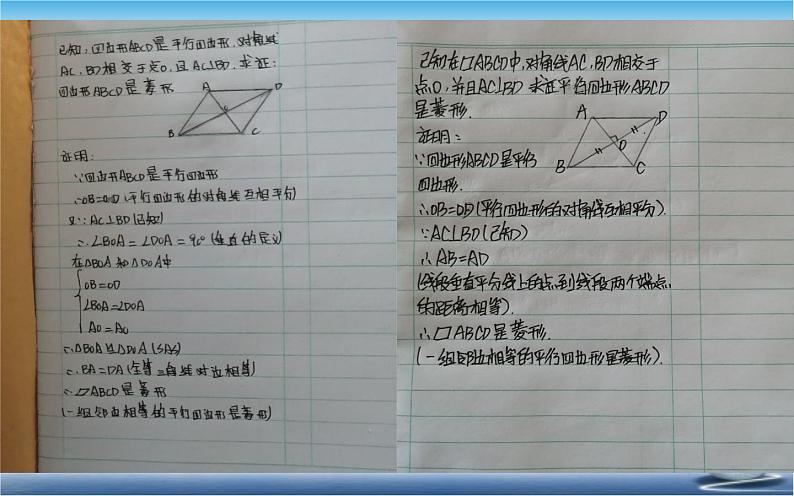 已知:四边形ABCD是平行四边形,对角线
AC、BD相交于点O,且AC⊥BD.求证:
四边形ABCD是菱形
A
D
O
B
C
证明:
∵四边形ABCD是平行四边形
∴OB=OD(平行四边形的对角线互相平分)
又∵AC⊥BD(已知)
∴∠BOA=∠DOA=90°(垂直的定义)
在△BOA和△DOA中
OB=OD
∠BOA=∠DOA
AO=AO
∴△BOA≌△DOA(SAS)
∴BA=DA(全等三角形对边相等)
∴▱ABCD是菱形
(一组邻边相等的平行四边形是菱形)
已知在▱ABCD中,对角线AC,BD相交于
点O,并且AC⊥BD 求证平行四边形ABCD
是菱形.
A
D
O
B
C
证明:
∵四边形ABCD是平行
四边形.
∴OB=OD(平行四边形的对角线互相平分).
∵AC⊥BD(已知)
∴AB=AD
(线段垂直平分线上的点到线段两个端点
的距离相等).
∴▱ABCD是菱形.
(一组邻边相等的平行四边形是菱形).